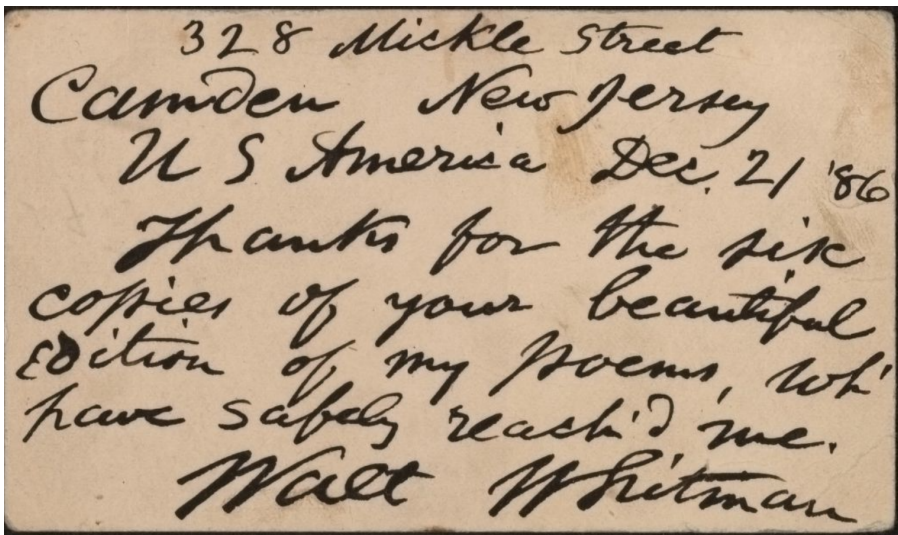 328 Mickle Street
Camden New Jersey
U S America Dec. 21 '86
Thanks for the six
copies of your beautiful
edition of my poems, wh'
have safely reach'd me.
Walt Whitman